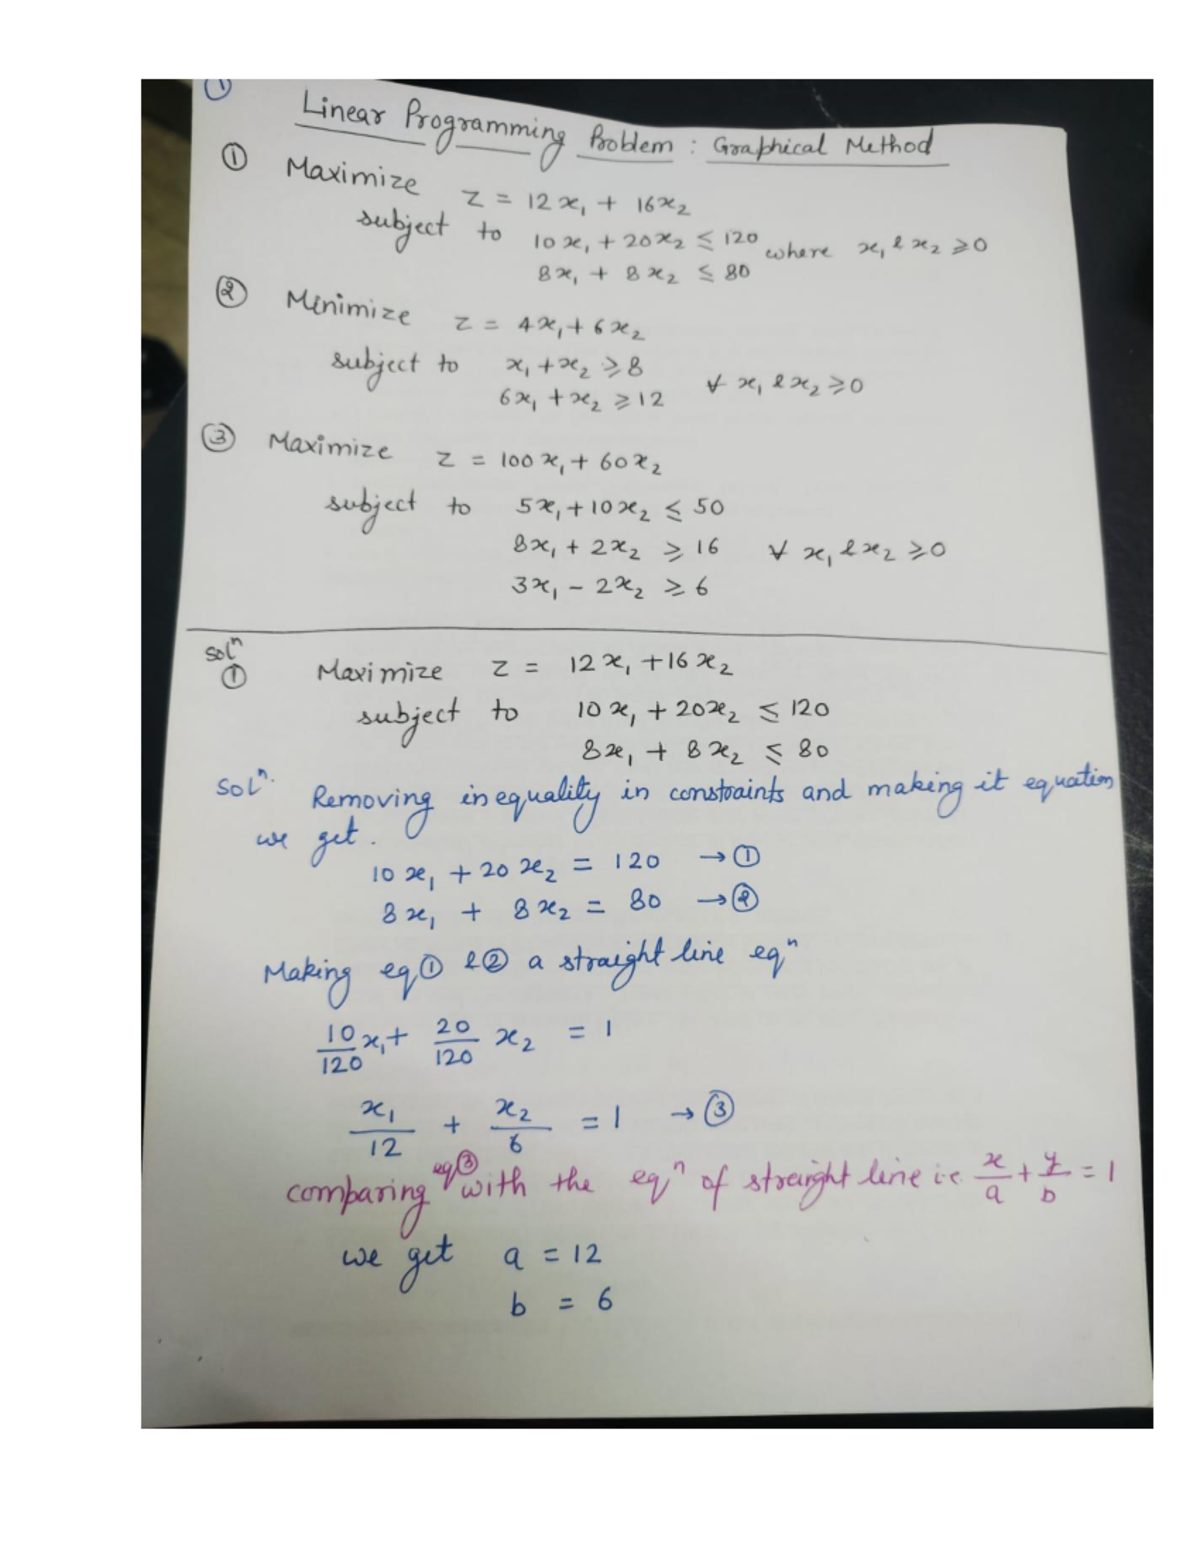 ①
Linear Programming Problem : Graphical Method
① Maximize z = 12x₁ + 16x₂
subject to 10x₁ + 20x₂ ≤ 120 where x₁ & x₂ ≥ 0
8x₁ + 8x₂ ≤ 80
② Minimize z = 4x₁ + 6x₂
subject to x₁ + x₂ ≥ 8
6x₁ + x₂ ≥ 12 ∀ x₁ & x₂ ≥ 0
③ Maximize z = 100x₁ + 60x₂
subject to 5x₁ + 10x₂ ≤ 50
8x₁ + 2x₂ ≥ 16 ∀ x₁ & x₂ ≥ 0
3x₁ - 2x₂ ≥ 6
Solⁿ
① Maximize z = 12x₁ + 16x₂
subject to 10x₁ + 20x₂ ≤ 120
8x₁ + 8x₂ ≤ 80
Solⁿ. Removing inequality in constraints and making it equation
we get.
10x₁ + 20x₂ = 120 → ①
8x₁ + 8x₂ = 80 → ②
Making eq① & ② a straight line eqⁿ
10/120 x₁ + 20/120 x₂ = 1
x₁/12 + x₂/6 = 1 → ③
comparing eq③ with the eqⁿ of straight line i.e. x/a + y/b = 1
we get a = 12
b = 6